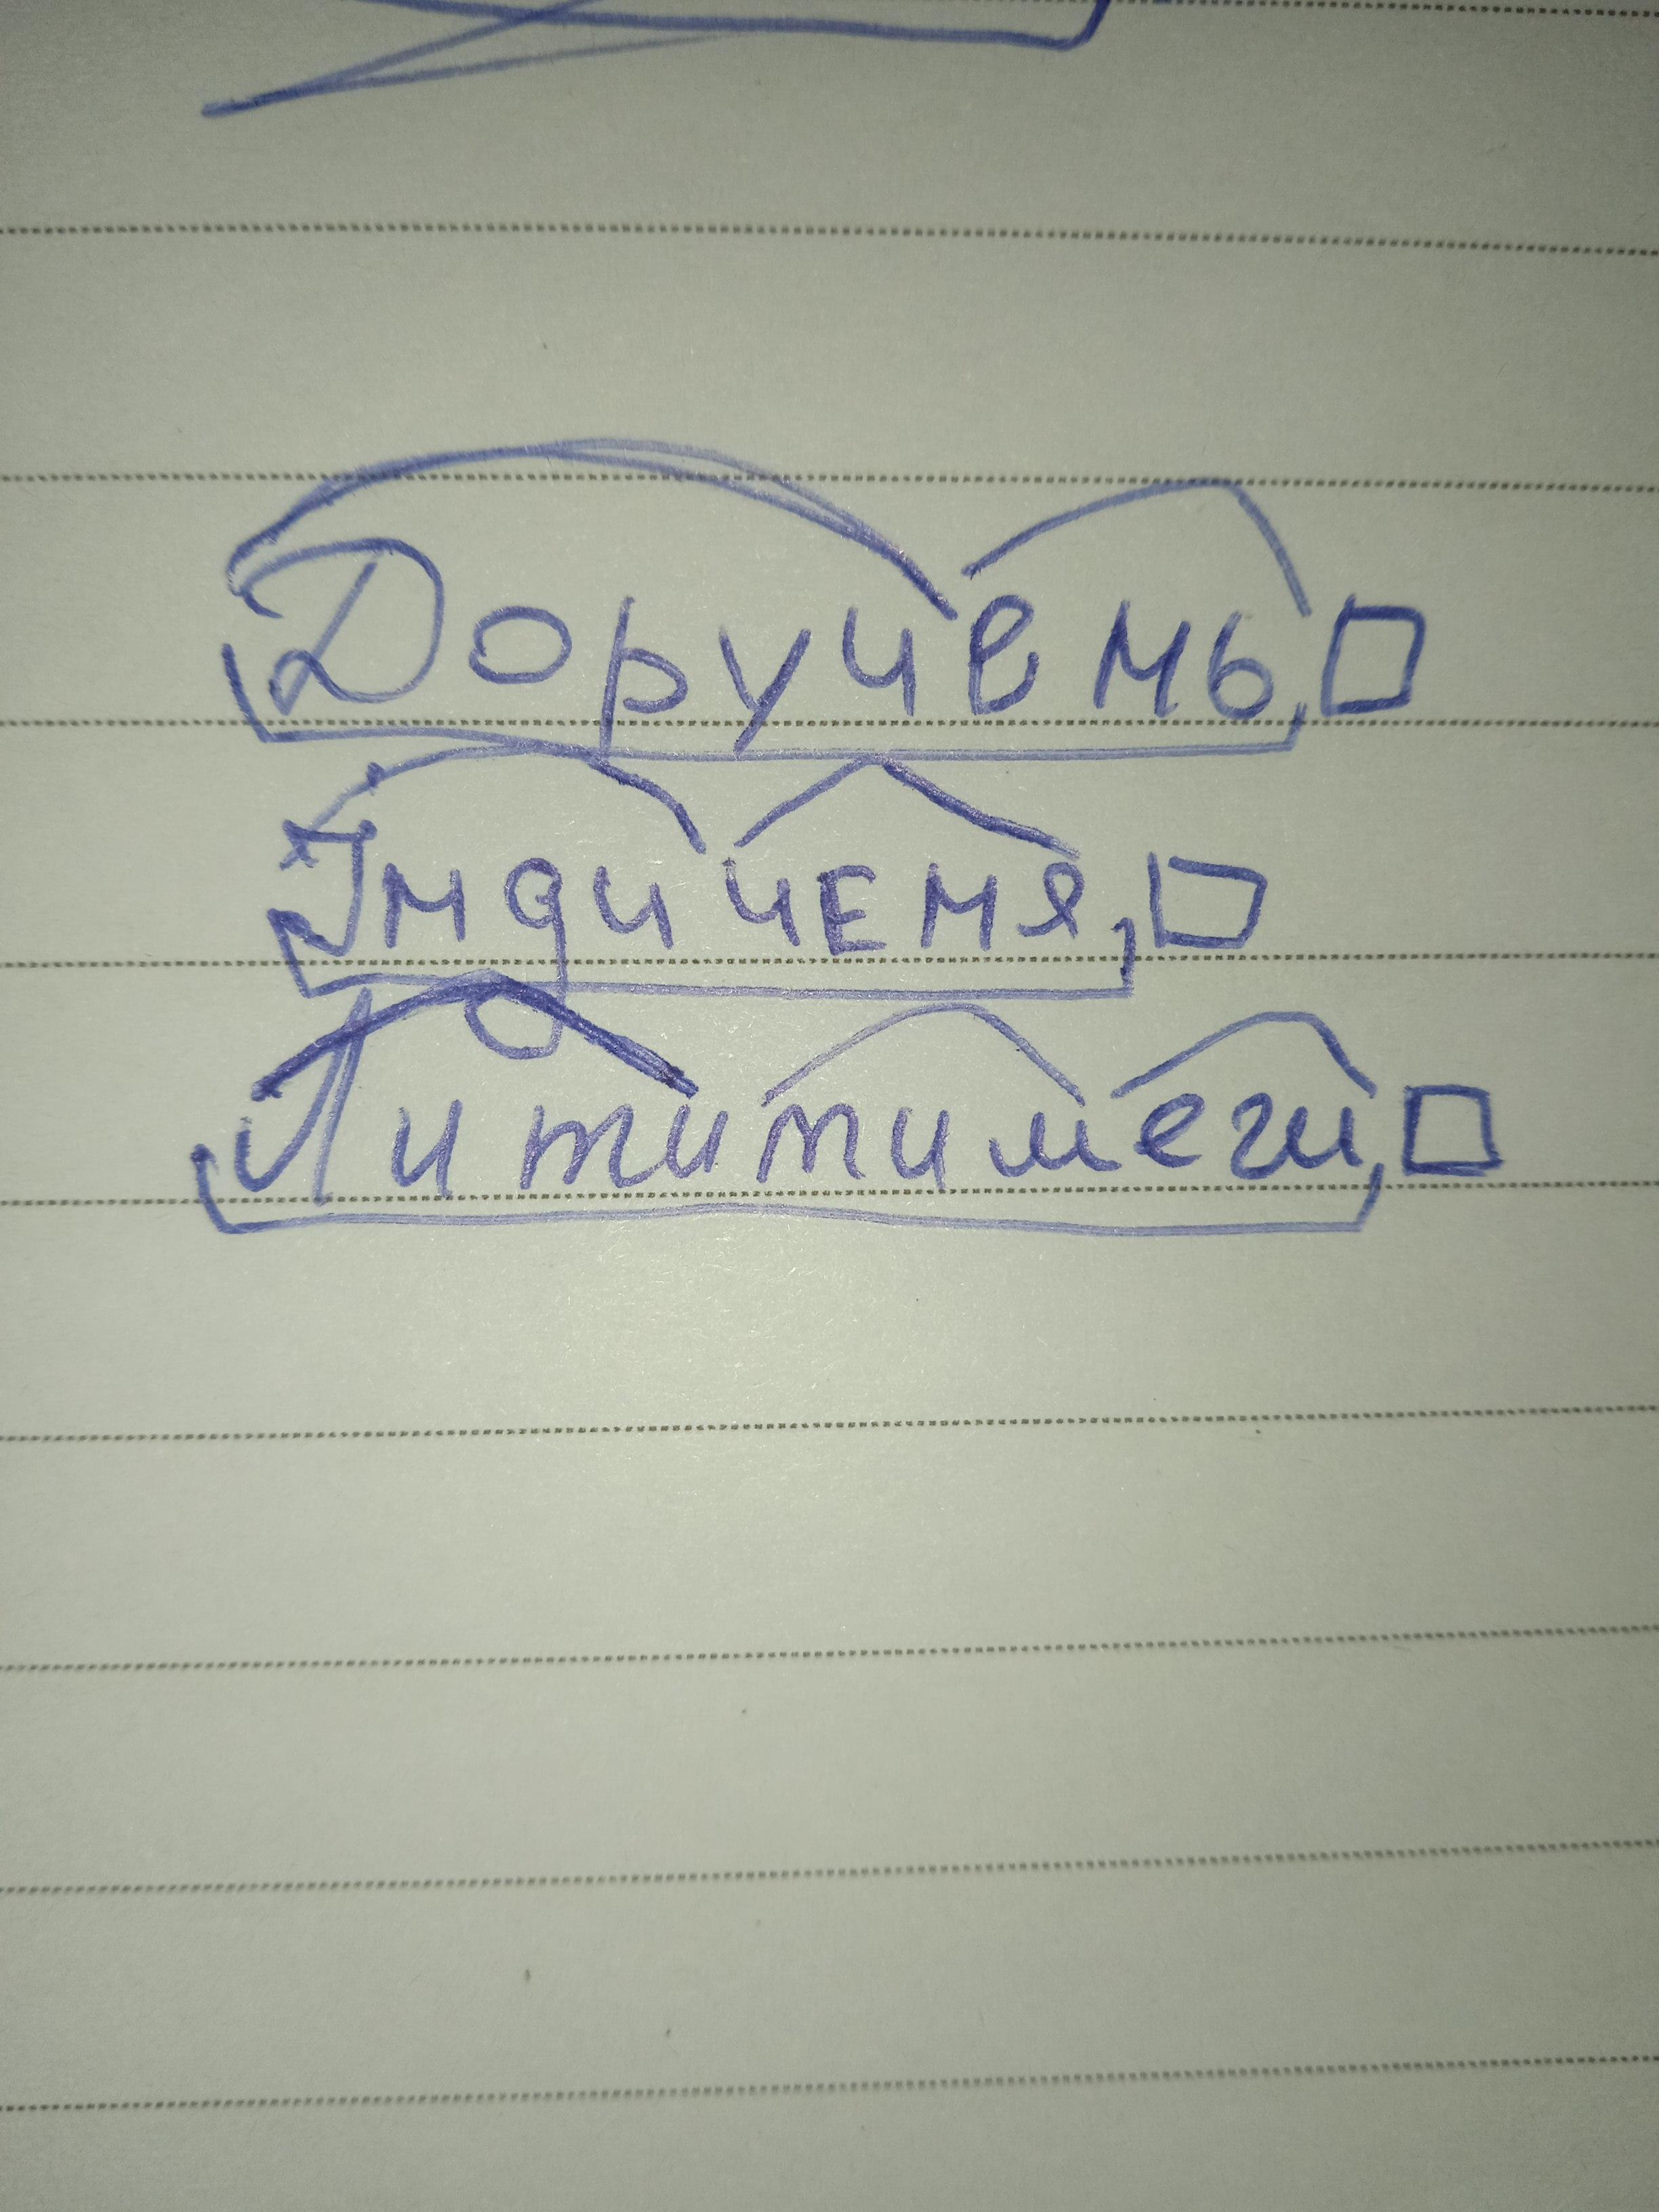 Доручемь,
Імдичемя,
Литипимеги,